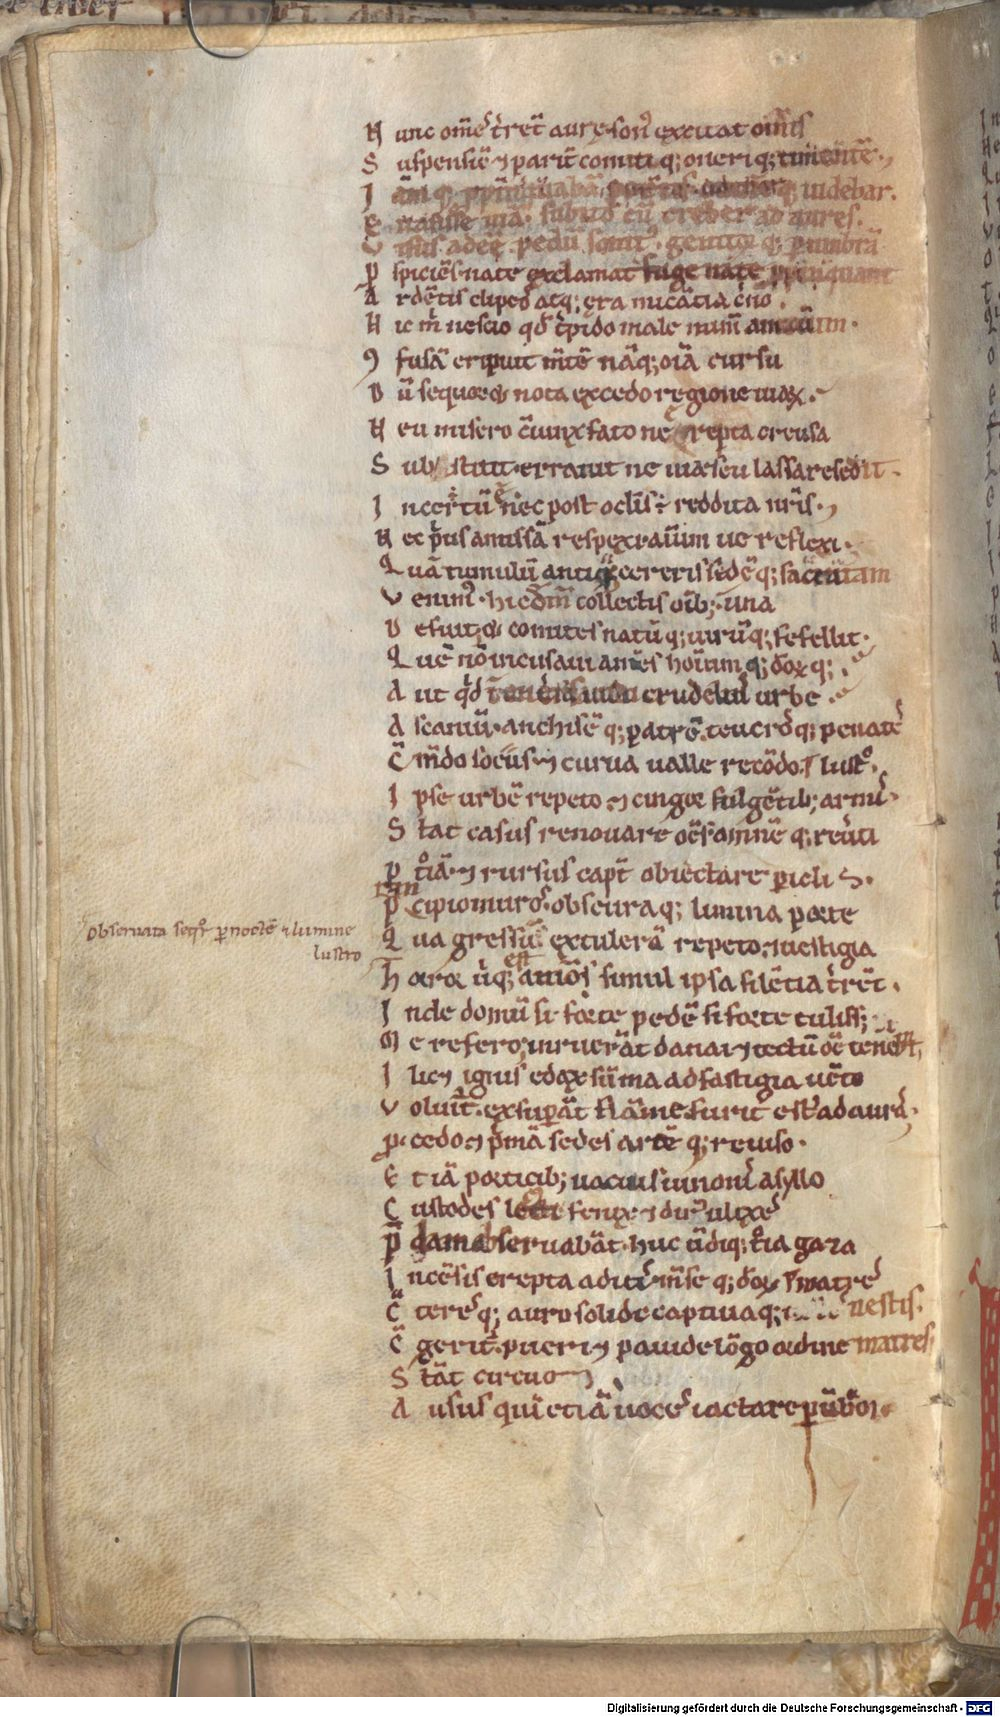 N unc om̅s t̅ret aure. son᷒ excitat om̅is
S uspensu̅ ⁊ parit̅ comiti q; oneri q; timente̅.
I a̅ q; p̅pinq̅uaba̅ portis. videbar.
E uasisse uia̅. subito cu̅ creber ad aures.
V isus adee̅ pedu̅ sonit᷒. genitor q; p umbra̅
P spicie̅s nate exclamat fuge nate p̅pinquant
A rde̅tis clipeos atq; era mica̅tia c̅no.
H ic m̅ nescio qd̅ t̅pido male num̅ amicum.
ꝯ fusa̅ eripuit m̅te̅ na̅q; oia̅ cursu
D u̅ sequor ⁊ nota excedo regione uiar̅.
H eu misero c̅iunx fato ne erepta creusa
S ubstitit. errauit ne uia seu lassa resedit.
I ncertu̅ nec post oclis e̅ reddita nr̅is.
N ec p̅us amissa̅ respexi aut̅ ue reflexi.
Q ua̅ tumulu̅ antiq̅ cereris sede̅ q; sacratam
V enim᷒. hic dem̅ collectis oib; una
D efuit. ⁊ comites natu̅ q; uiru̅ q; fefellit.
Q ue̅ no̅ incusaui ame̅s hoi̅um q; deor q;
A ut qd̅ uidi crudeli᷒ urbe.
A scaniu̅. anchise̅ q; patre̅. teucros q; penates
C̅ m̅do sociis ⁊ curua ualle reco̅do. ⁊ lustro.
I pse urbe̅ repeto ⁊ cingor fulge̅tib; armis.
S tat casus renouare oe̅s omne̅ q; reu̅ti
P t̊ia̅. ⁊ rursus capt̅ obiectare picli s.
P̅cipio muros. obscuraq; limina porte
Q ua gressu̅ extulera̅ repeto. ⁊ uestigia
observata seqr̊ p nocte̅ ⁊ lumine
lustro
H oror u̅q; est a̅mos simul ipsa sile̅tia t̅re̅t.
I nde domu̅ si forte pede̅ si forte tulisset;
M e refero. irruera̅t danai ⁊ tectu̅ oe̅ teneba̅t;
I lic; ignis edax su̅ma ad fastigia ue̅to
V oluit̅. exsupa̅t fla̅me. furit est᷒ ad auras.
P̱cedo ⁊ p̅ma̅ sedes arce̅ q; reuiso.
E t ia̅ porticib; uacuis iunonis asyllo
C ustodes lecti fenix ⁊ dir᷒ ulixes
P̅dam observaba̅t. huc u̅diq; t̊ia gaza
I nce̅sis erepta aditis m̅se q; deor ⁊ matres
C̅ teres q; auro solidi captiuaq; uestis.
C̅ gerit̅. pueri ⁊ pauide lo̅go ordine matres.
S ta̅t circum
A usus qui̅ etia̅ uoces iactare p u̅bra̅.
Digitalisierung gefördert durch die Deutsche Forschungsgemeinschaft - DFG